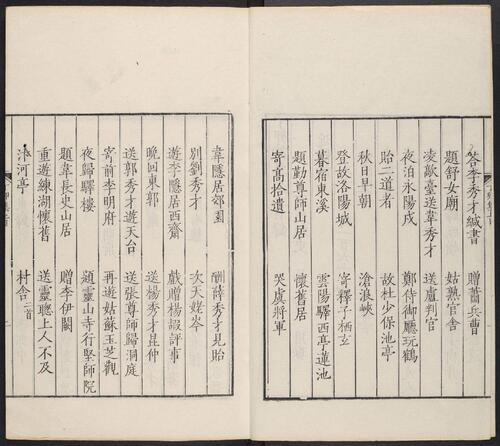 答李秀才緘書　贈蕭兵曹
題舒女廟　姑熟官舍
凌歊臺送韋秀才　送盧判官
夜泊永陽戍　鄭侍御廳玩鶴
貽二道者　故杜少保池亭
秋日早朝　滄浪峽
登故洛陽城　寄釋子栖玄
暮宿東溪　雲陽驛西亭蓮池
題勤尊師山居　懷舊居
寄高拾遺　哭虞將軍
韋隱居郊園　酬薛秀才見貽
別劉秀才　次天姥岑
遊李隱居西齋　戲贈楊嘏評事
晚回東郭　送楊秀才昆仲
送郭秀才遊天台　送張尊師歸洞庭
寄前李明府　再遊姑蘇玉芝觀
夜歸驛樓　題靈山寺行堅師院
題韋長史山居　贈李伊闕
重遊練湖懷舊　送靈聰上人不及
汴河亭　村舍二首